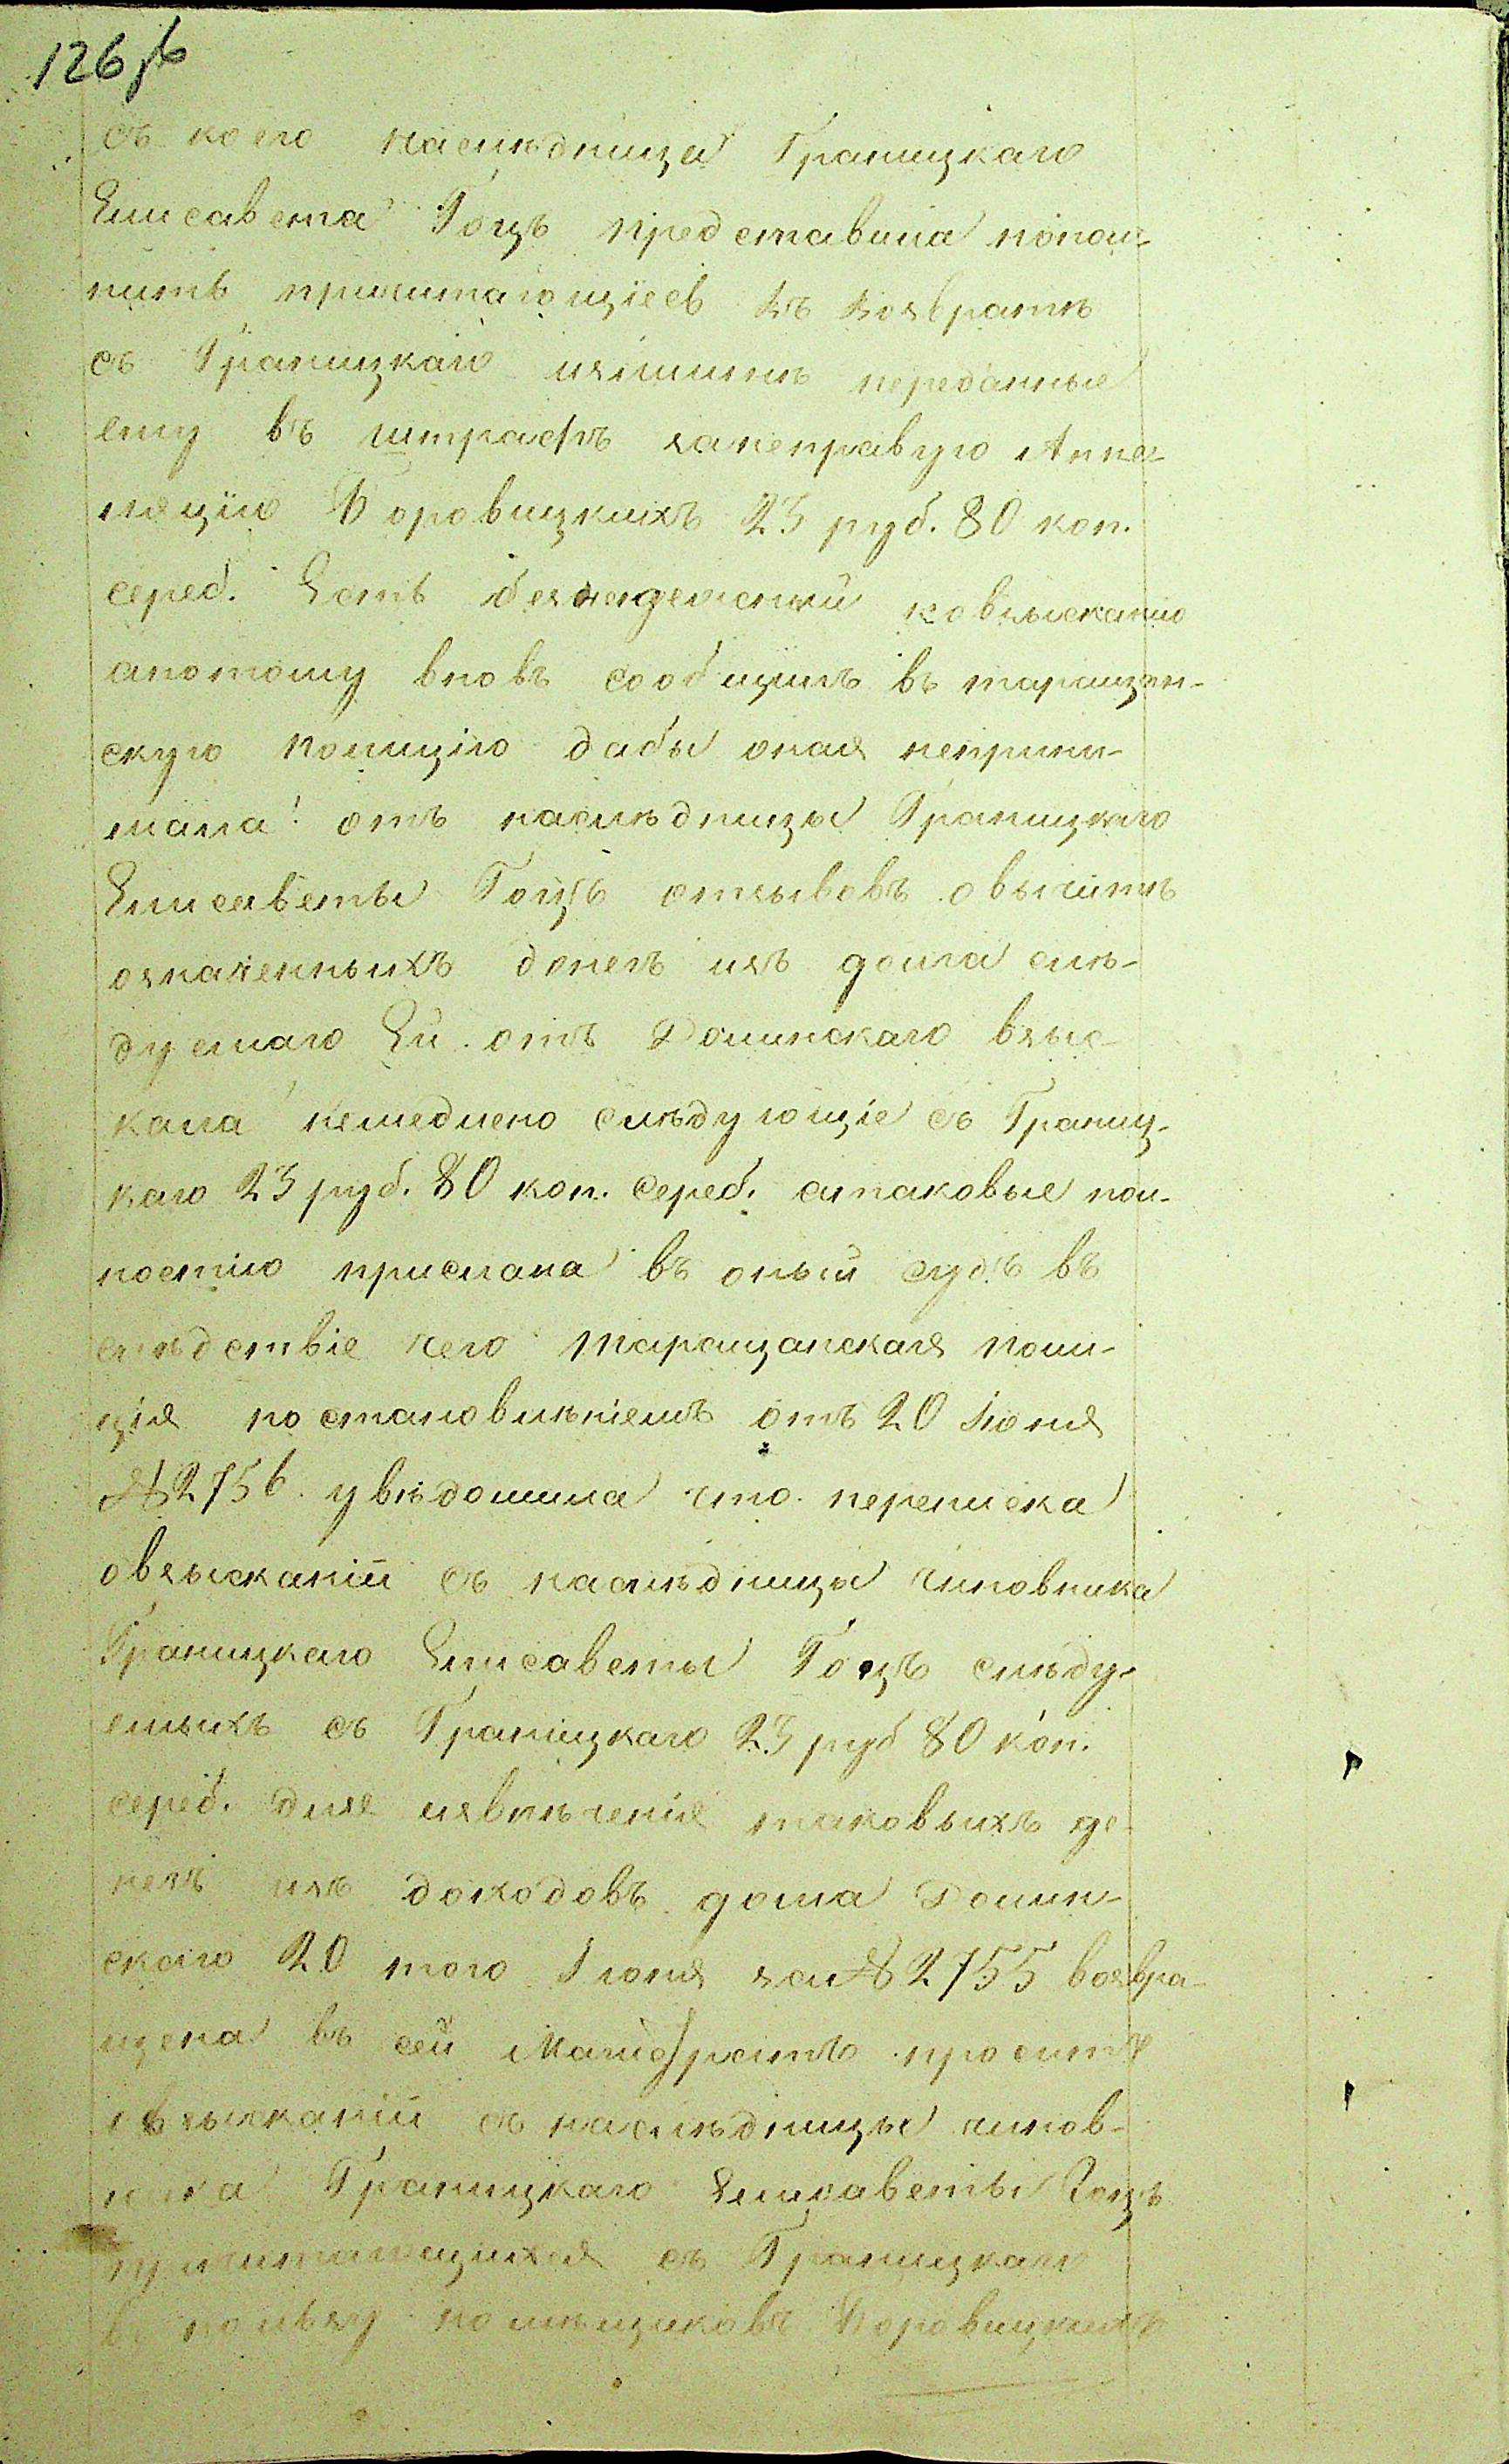 126 об
съ коего наслѣдница Границкаго
Елисавета Гоцъ представила попол-
нить причитающіесь къ возвратѣ
съ Границкаго излишнѣ переданные
ему въ штрафъ занеправую Аппе-
ляцію Боровицкихъ 23 руб. 80 коп.
сереб. Есть безнадежный ковзысканію
апотому вновь сообщилъ въ таращан-
скую полицію дабы оная неприни-
мала отъ наслѣдницы Границкаго
Елисаветы Гоцъ отзывовъ овычитѣ
означенныхъ денегъ изъ долга слѣ-
дуемаго Ей отъ Долинскаго взыс-
кала немедлено слѣдующіе съ Границ-
каго 23 руб. 80 коп. сереб. итаковые пол-
ностію прислана въ оный судъ въ
слѣдствіе чего таращанская поли-
ція постановлѣніемъ отъ 20 Іюня
№ 2756 увѣдомила что переписка
овзысканіи съ наслѣдницы чиновника
Границкаго Елисаветы Гоцъ слѣду-
емыхъ съ Границкаго 23 руб 80 коп.
сереб. для извлѣченія таковыхъ де-
негъ изъ доходовъ дома Долин-
скаго 20 того Іюня за № 2755 возвра-
щена въ сей Магистратъ проситъ
овзысканіи съ наслѣдницы чинов-
ника Границкаго Елисаветы Гоцъ
причитающихся съ Границкаго
въ пользу помѣщиковъ Боровицкихъ